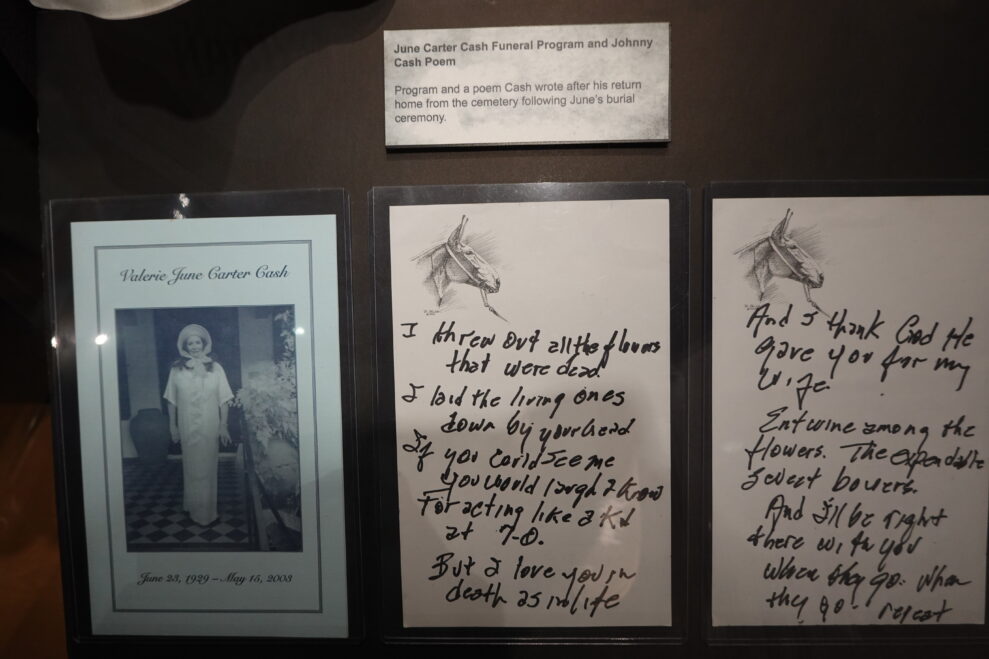 June Carter Cash Funeral Program and Johnny
Cash Poem
Program and a poem Cash wrote after his return
home from the cemetery following June's burial
ceremony.
Valerie June Carter Cash
June 23, 1929 – May 15, 2003
I threw out all the flowers
that were dead
I laid the living ones
down by your head
If you could see me
You would laugh I know
For acting like a kid
at 7-0.
But I love you in
death as in life
And I thank God He
gave you for my
wife
Entwine among the
flowers. The expendable
sweet bowers.
And I'll be right
there with you
when they go. When
they go - repeat